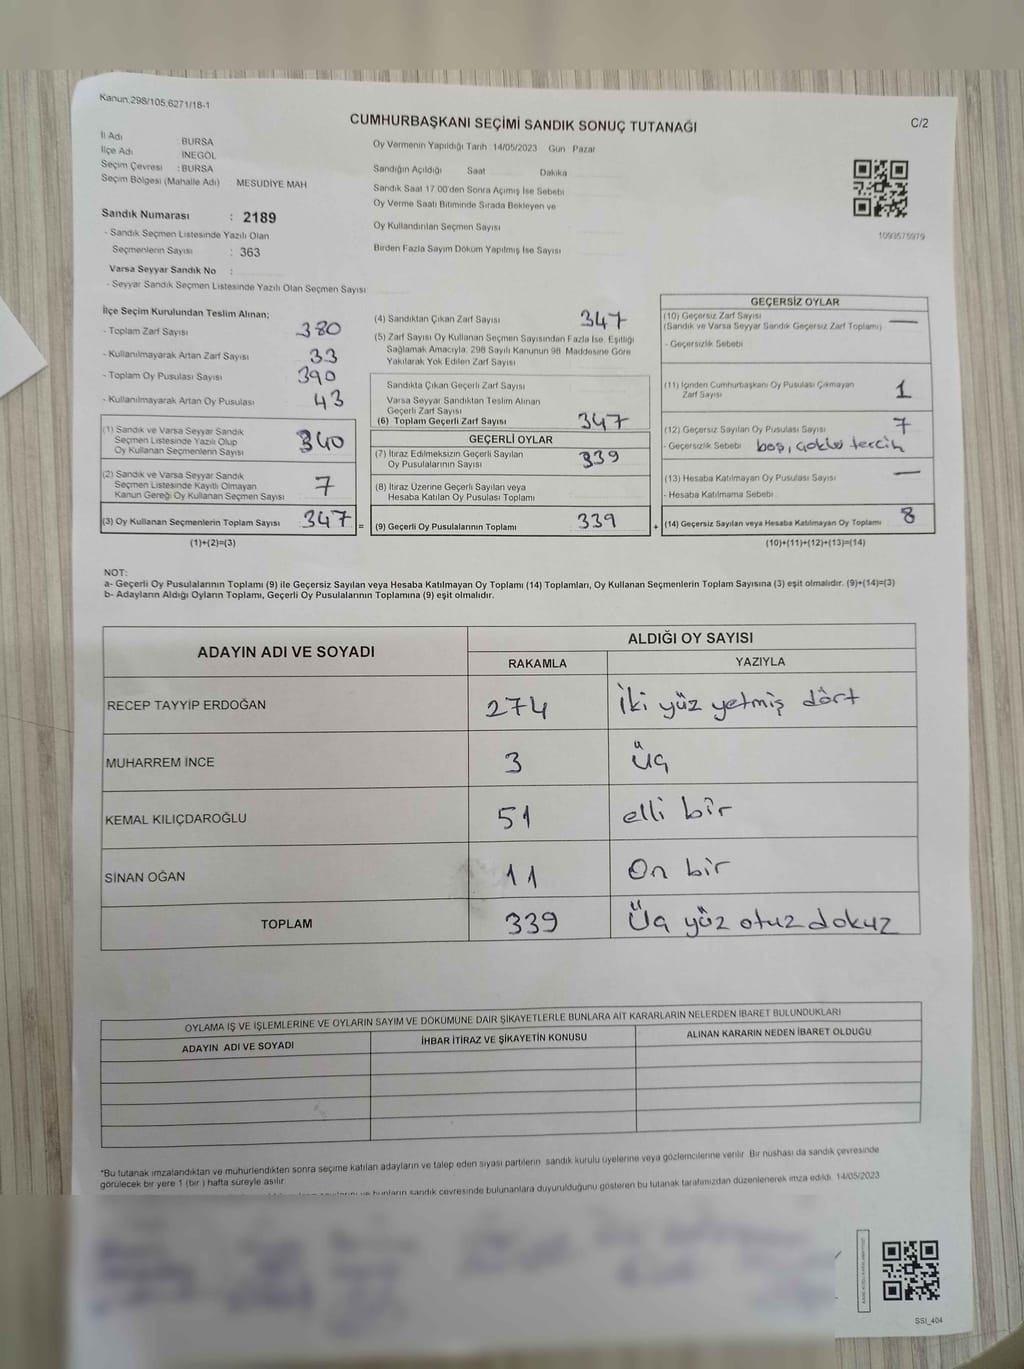 Kanun.298/105.6271/18-1
C/2
CUMHURBAŞKANI SEÇİMİ SANDIK SONUÇ TUTANAĞI
İl Adı : BURSA
İlçe Adı : İNEGÖL
Seçim Çevresi : BURSA
Seçim Bölgesi (Mahalle Adı) MESUDİYE MAH
Oy Vermenin Yapıldığı Tarih 14/05/2023 Gün Pazar
Sandığın Açıldığı Saat Dakika
Sandık Saat 17.00'den Sonra Açılmış İse Sebebi
Oy Verme Saati Bitiminde Sırada Bekleyen ve
Oy Kullandırılan Seçmen Sayısı
Birden Fazla Sayım Döküm Yapılmış İse Sayısı
1093575979
Sandık Numarası : 2189
- Sandık Seçmen Listesinde Yazılı Olan
Seçmenlerin Sayısı : 363
Varsa Seyyar Sandık No :
- Seyyar Sandık Seçmen Listesinde Yazılı Olan Seçmen Sayısı
İlçe Seçim Kurulundan Teslim Alınan;
- Toplam Zarf Sayısı 380
- Kullanılmayarak Artan Zarf Sayısı 33
- Toplam Oy Pusulası Sayısı 390
- Kullanılmayarak Artan Oy Pusulası 43
(1) Sandık ve Varsa Seyyar Sandık
Seçmen Listesinde Yazılı Olup
Oy Kullanan Seçmenlerin Sayısı 340
(2) Sandık ve Varsa Seyyar Sandık
Seçmen Listesinde Kayıtlı Olmayan
Kanun Gereği Oy Kullanan Seçmen Sayısı 7
(3) Oy Kullanan Seçmenlerin Toplam Sayısı 347 =
(1)+(2)=(3)
(4) Sandıktan Çıkan Zarf Sayısı 347
(5) Zarf Sayısı Oy Kullanan Seçmen Sayısından Fazla İse, Eşitliği
Sağlamak Amacıyla, 298 Sayılı Kanunun 98 Maddesine Göre
Yakılarak Yok Edilen Zarf Sayısı
Sandıkta Çıkan Geçerli Zarf Sayısı
Varsa Seyyar Sandıktan Teslim Alınan
Geçerli Zarf Sayısı
(6) Toplam Geçerli Zarf Sayısı 347
GEÇERLİ OYLAR
(7) İtiraz Edilmeksizin Geçerli Sayılan
Oy Pusulalarının Sayısı 339
(8) İtiraz Üzerine Geçerli Sayılan veya
Hesaba Katılan Oy Pusulası Toplamı
(9) Geçerli Oy Pusulalarının Toplamı 339 +
GEÇERSİZ OYLAR
(10) Geçersiz Zarf Sayısı —
(Sandık ve Varsa Seyyar Sandık Geçersiz Zarf Toplamı)
- Geçersizlik Sebebi
(11) İçinden Cumhurbaşkanı Oy Pusulası Çıkmayan
Zarf Sayısı 1
(12) Geçersiz Sayılan Oy Pusulası Sayısı 7
- Geçersizlik Sebebi boş, çoklu tercih
(13) Hesaba Katılmayan Oy Pusulası Sayısı —
- Hesaba Katılmama Sebebi
(14) Geçersiz Sayılan veya Hesaba Katılmayan Oy Toplamı 8
(10)+(11)+(12)+(13)=(14)
NOT:
a- Geçerli Oy Pusulalarının Toplamı (9) ile Geçersiz Sayılan veya Hesaba Katılmayan Oy Toplamı (14) Toplamları, Oy Kullanan Seçmenlerin Toplam Sayısına (3) eşit olmalıdır. (9)+(14)=(3)
b- Adayların Aldığı Oyların Toplamı, Geçerli Oy Pusulalarının Toplamına (9) eşit olmalıdır.
ADAYIN ADI VE SOYADI
ALDIĞI OY SAYISI
RAKAMLA YAZIYLA
RECEP TAYYİP ERDOĞAN 274 İki yüz yetmiş dört
MUHARREM İNCE 3 Üç
KEMAL KILIÇDAROĞLU 51 elli bir
SİNAN OĞAN 11 On bir
TOPLAM 339 Üç yüz otuz dokuz
OYLAMA İŞ VE İŞLEMLERİNE VE OYLARIN SAYIM VE DÖKÜMÜNE DAİR ŞİKAYETLERLE BUNLARA AİT KARARLARIN NELERDEN İBARET BULUNDUKLARI
ADAYIN ADI VE SOYADI İHBAR İTİRAZ VE ŞİKAYETİN KONUSU ALINAN KARARIN NEDEN İBARET OLDUĞU
*Bu tutanak imzalandıktan ve mühürlendikten sonra seçime katılan adayların ve talep eden siyasi partilerin sandık kurulu üyelerine veya gözlemcilerine verilir. Bir nüshası da sandık çevresinde
görülecek bir yere 1 (bir) hafta süreyle asılır.
bunların sandık çevresinde bulunanlara duyurulduğunu gösteren bu tutanak tarafımızdan düzenlenerek imza edildi. 14/05/2023
SSI_404